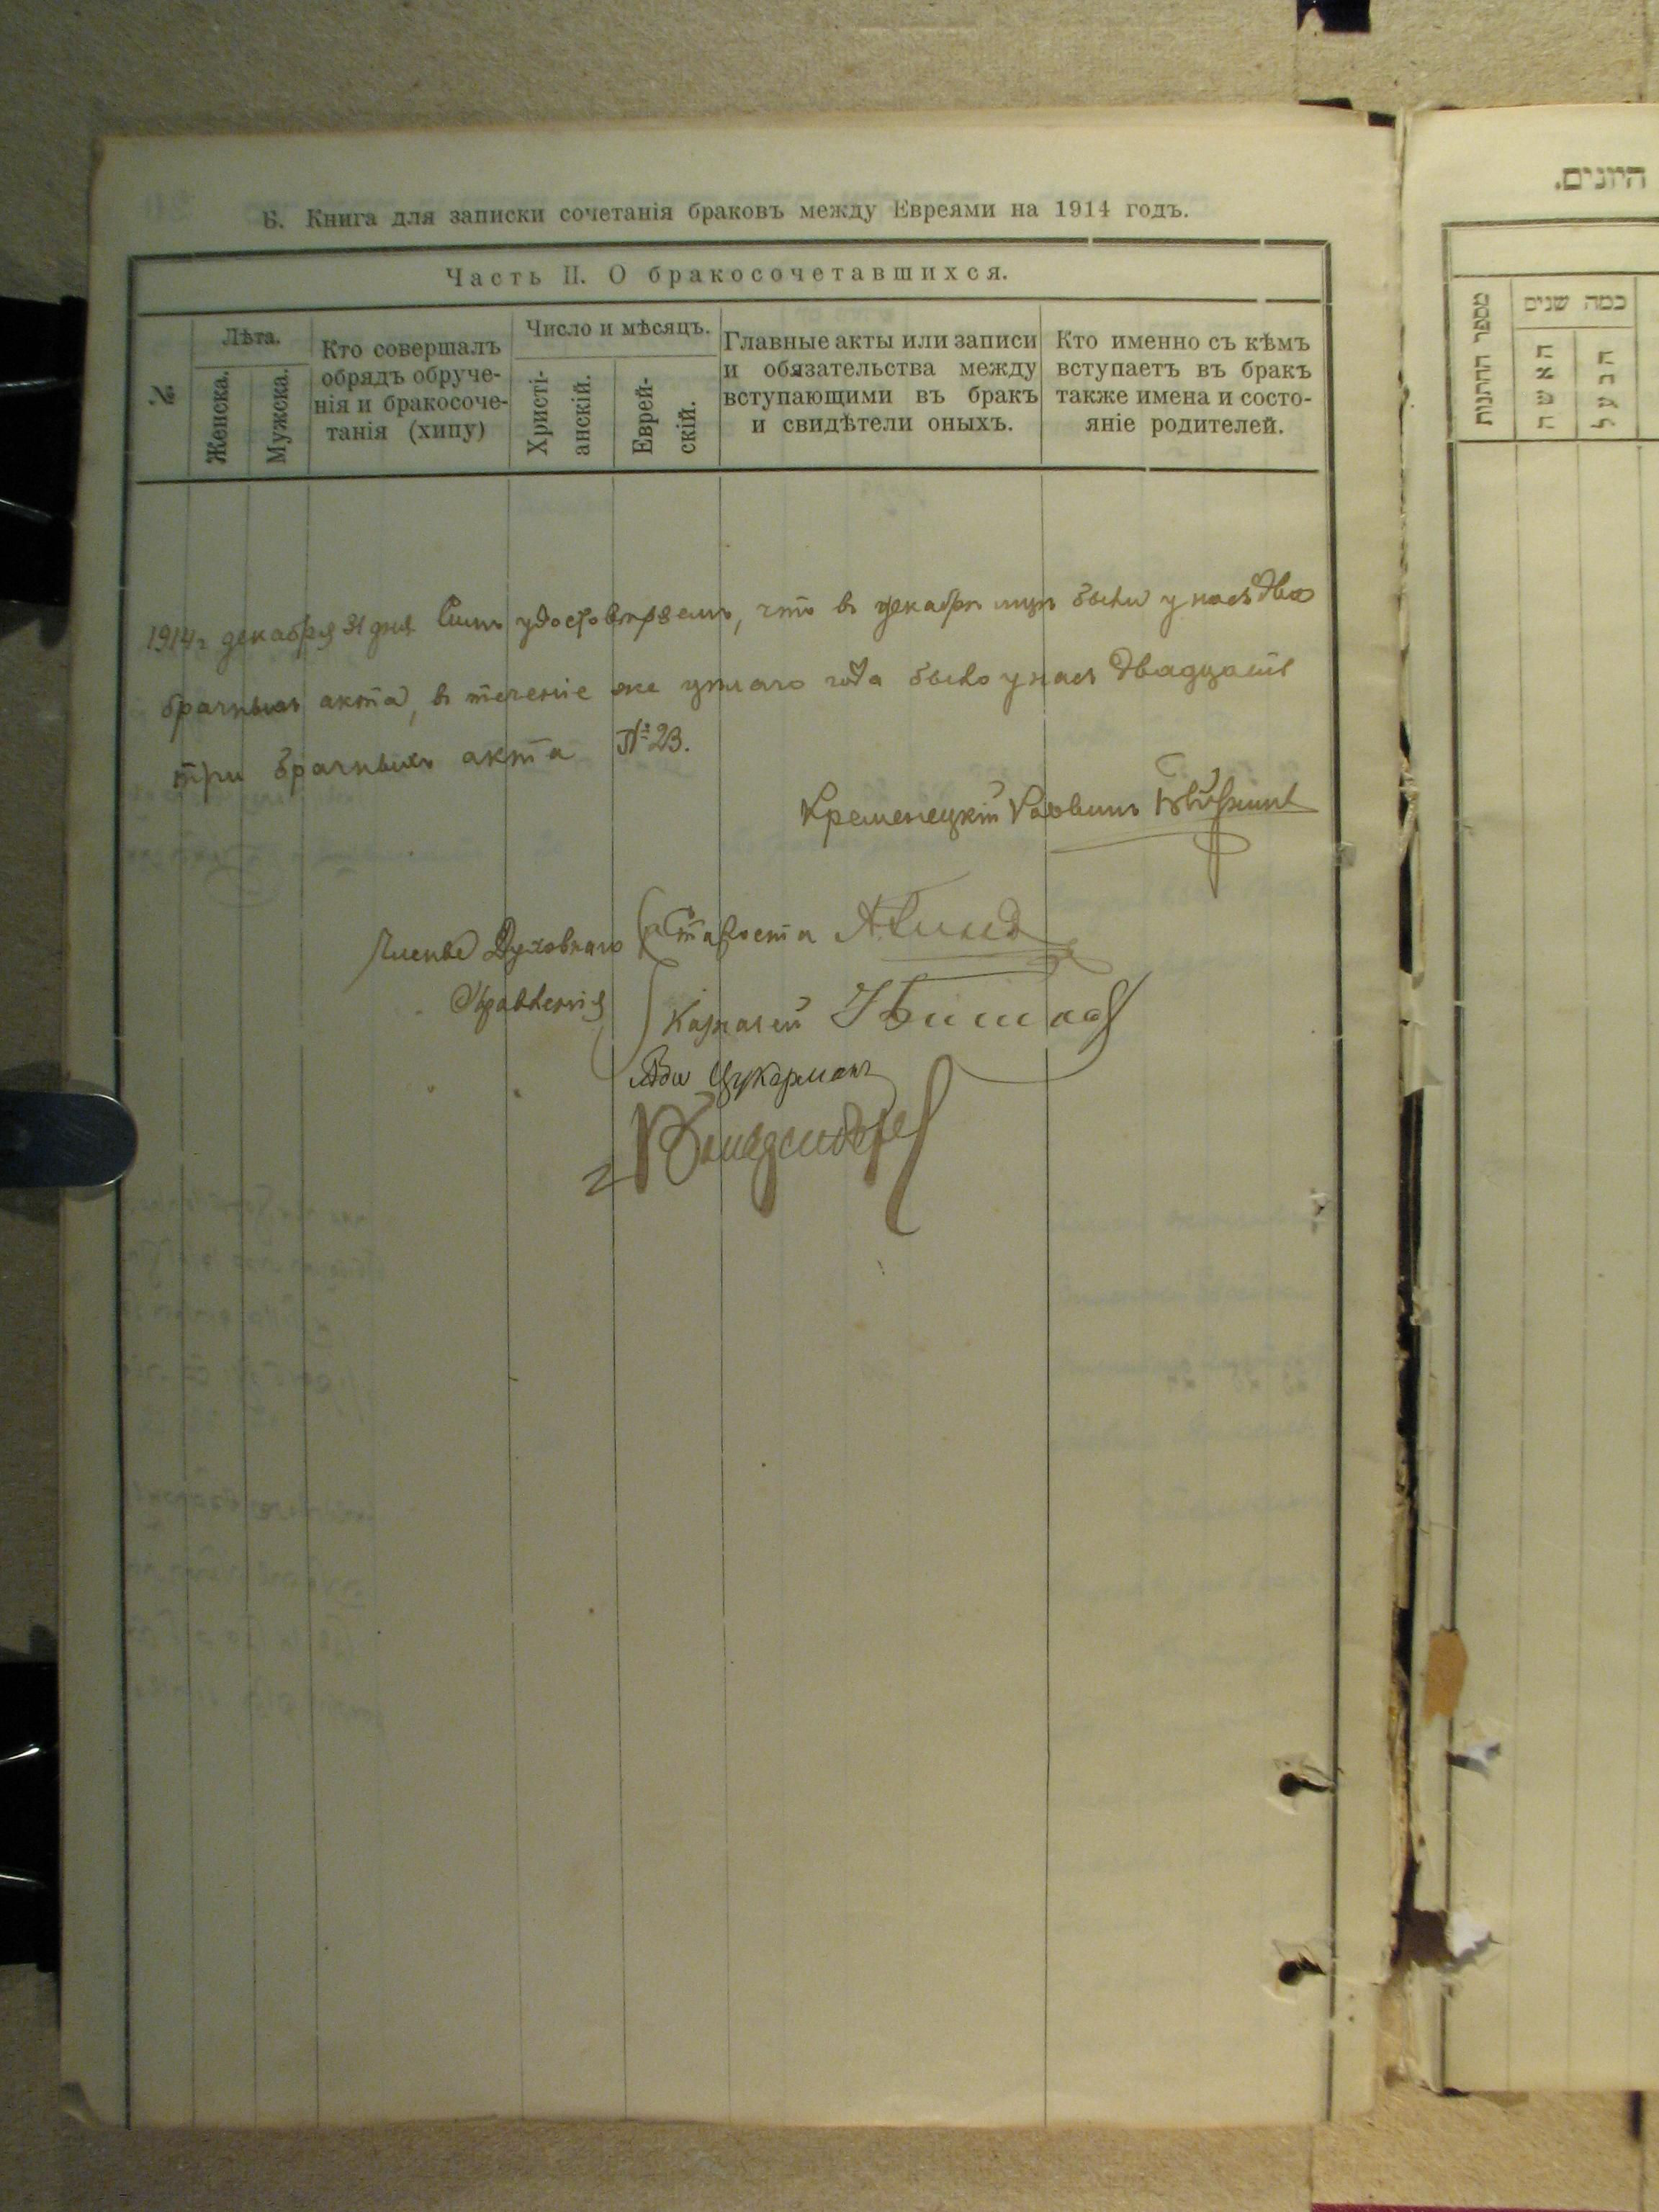 Б. Книга для записки сочетанія браковъ между Евреями на 1914 годъ.
Часть II. О бракосочетавшихся.
№
Лѣта.
Женска.
Мужска.
Кто совершалъ
обрядъ обруче-
нія и бракосоче-
танія (хипу)
Число и мѣсяцъ.
Христі-
анскій.
Еврей-
скій.
Главные акты или записи
и обязательства между
вступающими въ бракъ
и свидѣтели оныхъ.
Кто именно съ кѣмъ
вступаетъ въ бракъ
также имена и состо-
яніе родителей.
1914 г декабря 31 дня Симъ удостовѣряемъ, что въ декабрѣ мцѣ были у насъ два
брачныхъ акта, въ теченіе же цѣлаго года было у насъ двадцать
три брачныхъ акта №23.
Кременецкій Раввинъ
Члены Духовнаго
Правленія
Староста
Казначей
Цукерманъ
היונים.
מספר החתנות
כמה שנים
האשה
הבעל